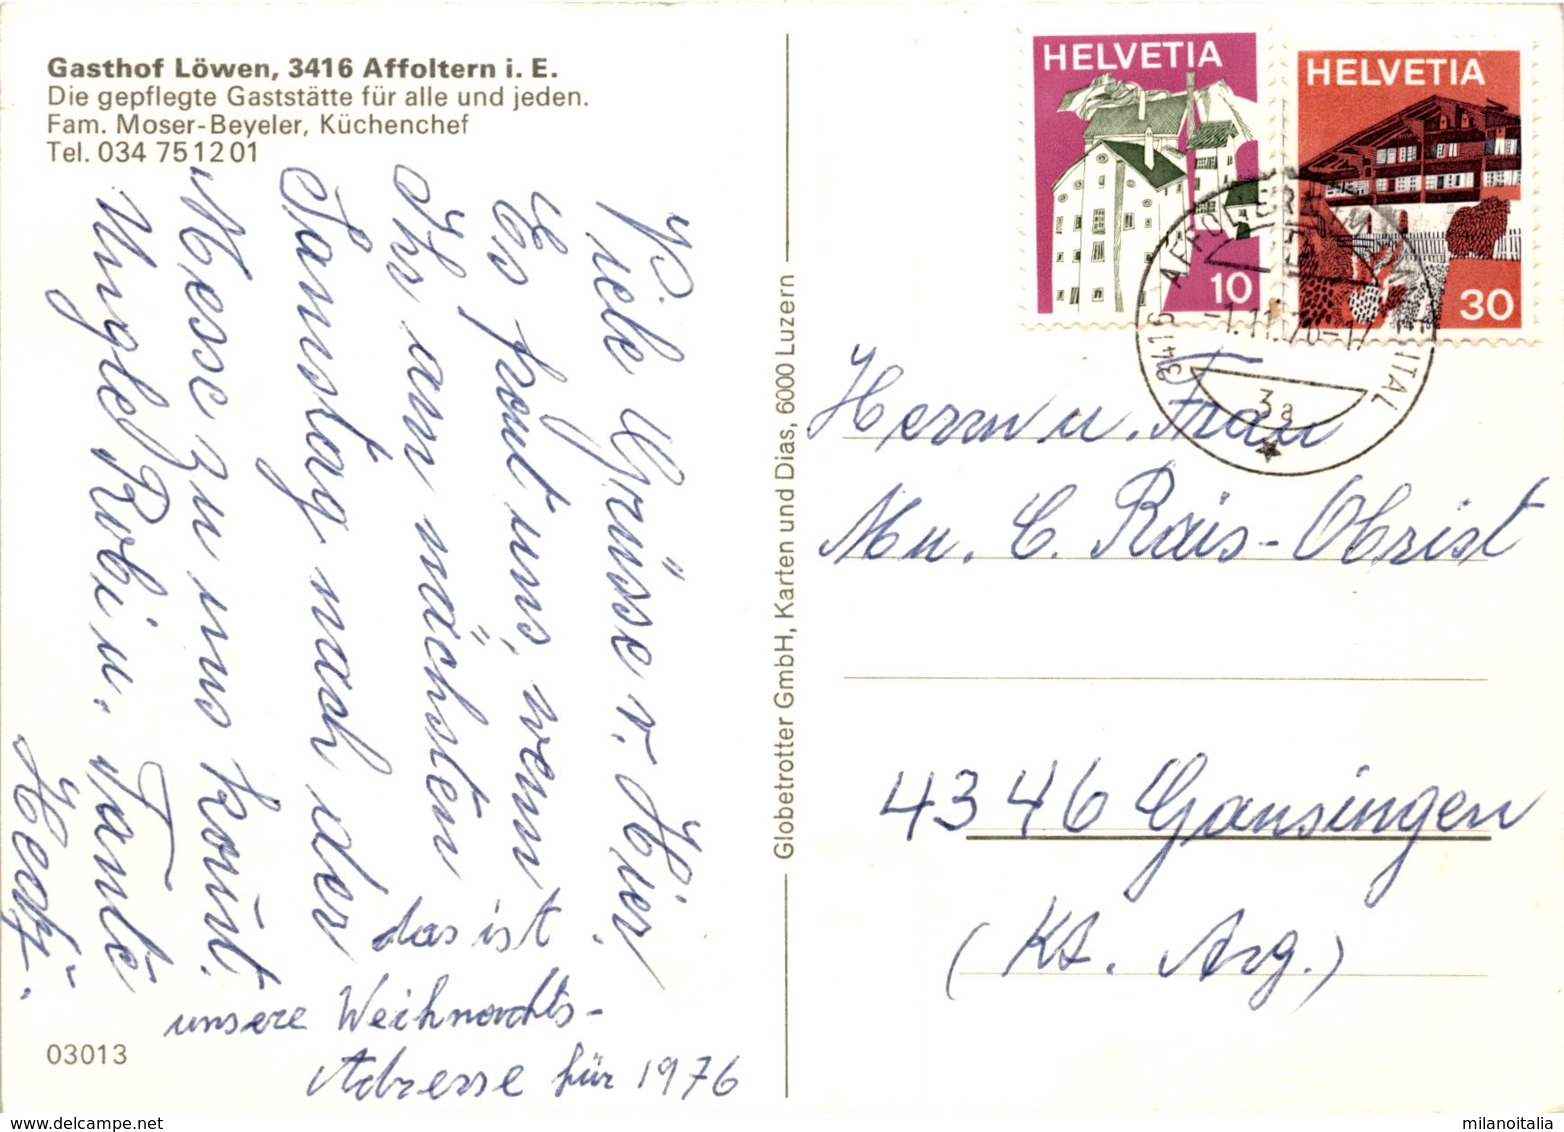 Gasthof Löwen, 3416 Affoltern i. E.
Die gepflegte Gaststätte für alle und jeden.
Fam. Moser-Beyeler, Küchenchef
Tel. 034 75 12 01
Viele Grüsse v. Hier,
Es freut uns, wenn
Ihr am nächsten
Samstag nach der
Messe zu uns komt.
Ungle Robi u. Tante
das ist
unsere Weihnachts-
Adresse für 1976
03013
Globetrotter GmbH, Karten und Dias, 6000 Luzern
HELVETIA
10
HELVETIA
30
3416 AFFOLTERN
3a
Herrn u. Frau
C. Rais-Obrist
4346 Gansingen
(Kt. Arg.)
milanoitalia